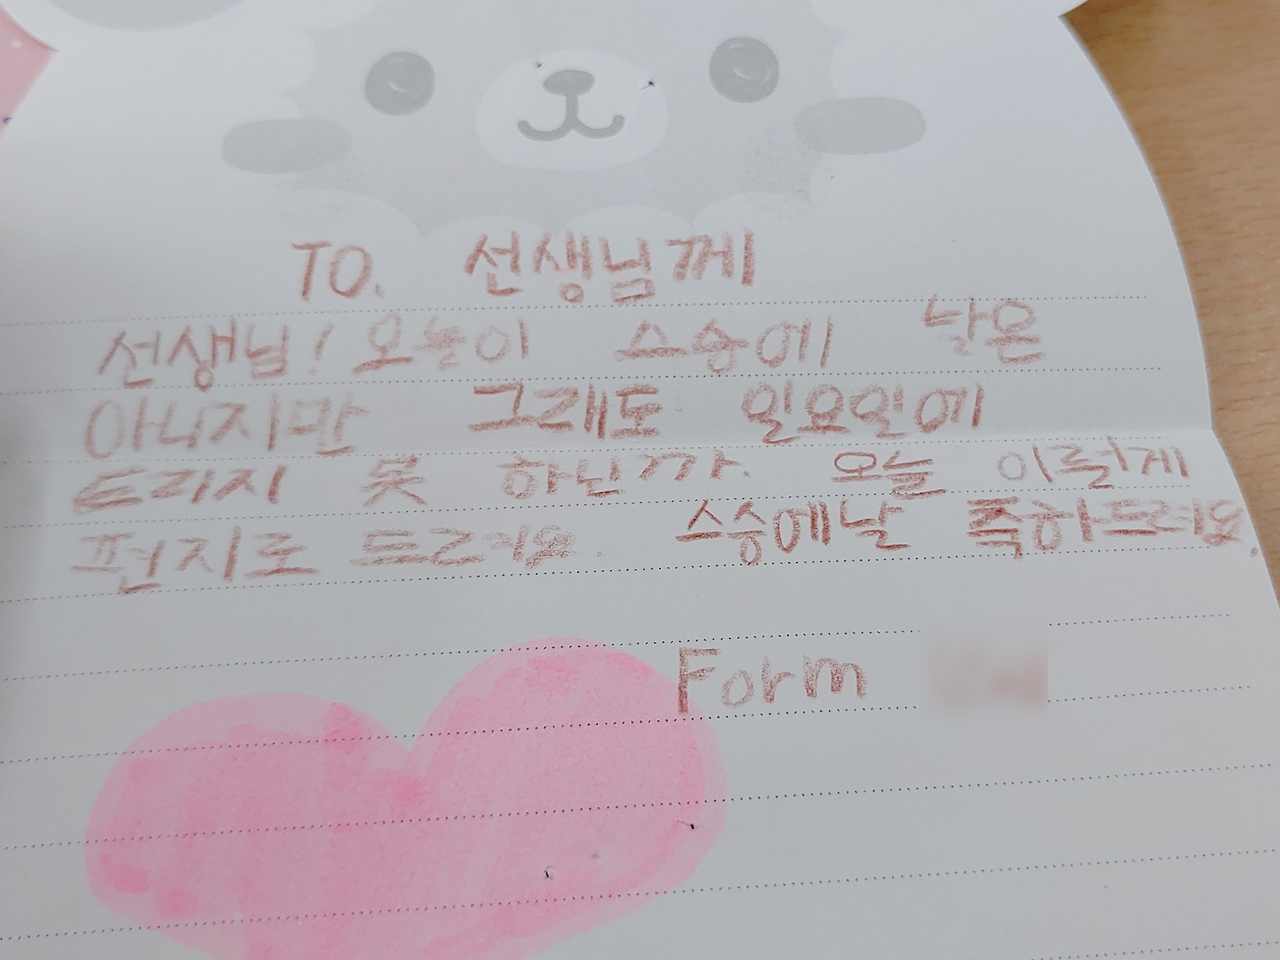 TO. 선생님께
선생님! 오늘이 스승에 날은
아니지만 그래도 일요일에
드리지 못 하닌까. 오늘 이렇게
편지로 드려요. 스승에날 축하드려요.
Form